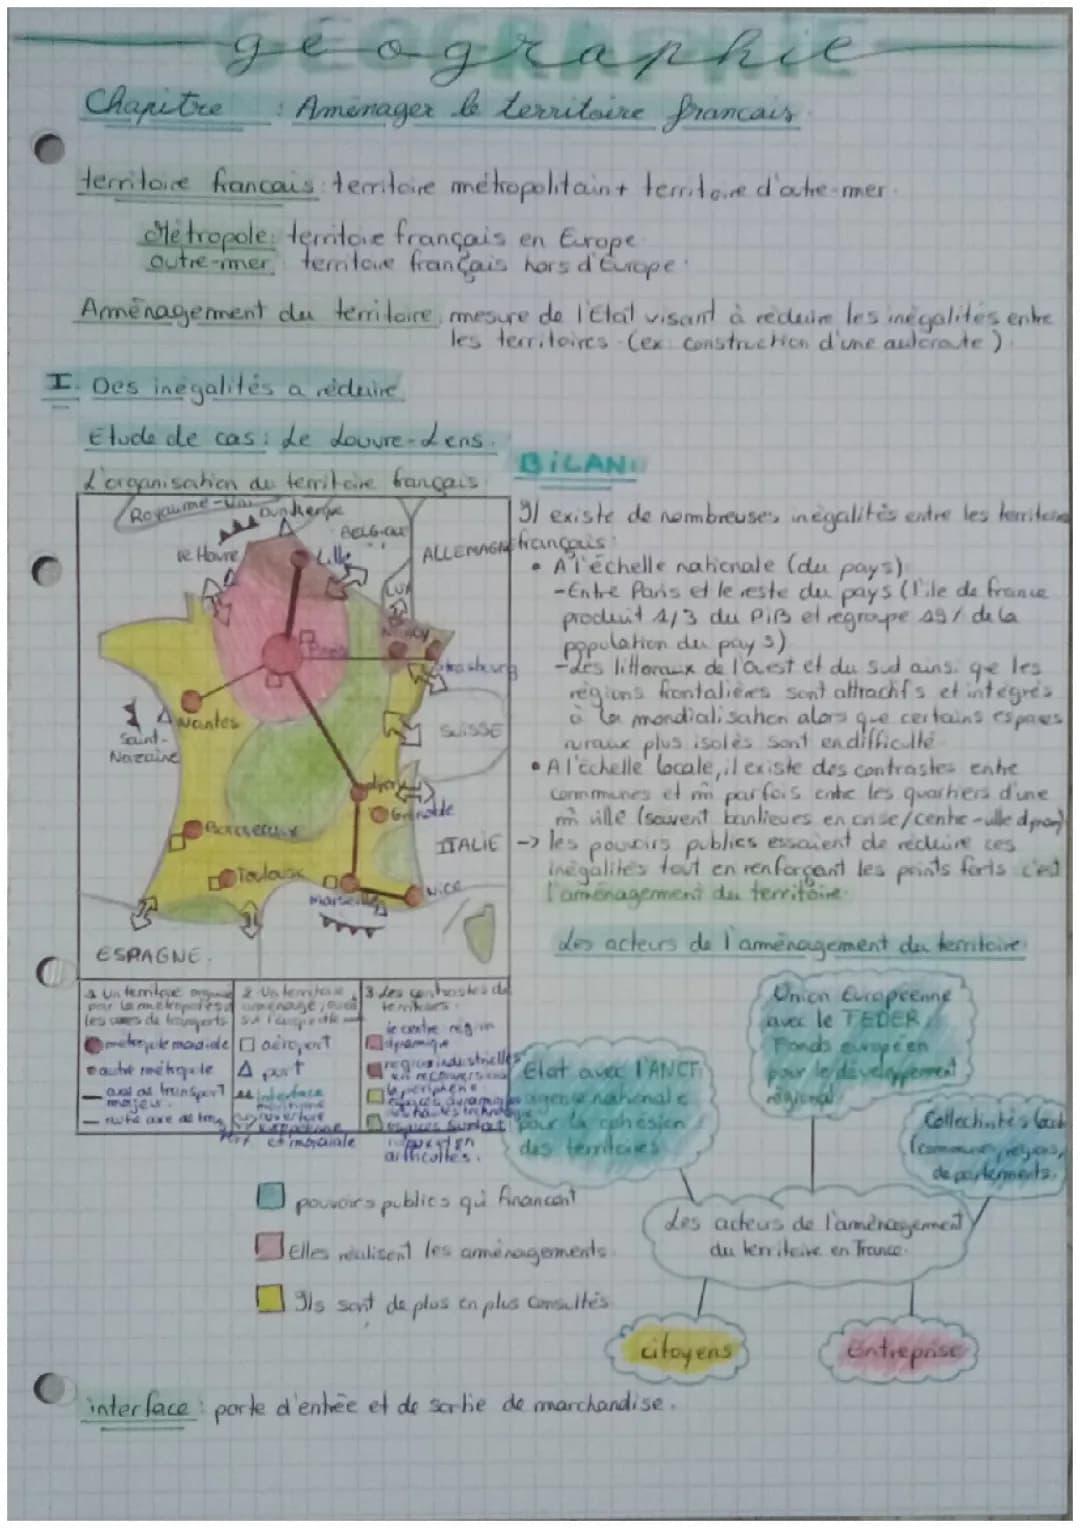 GÉOGRAPHIE
géographie
Chapitre : Aménager le territoire francais
territoire francais : territoire métropolitain + territoire d'outre-mer.
Métropole : territoire français en Europe
outre-mer : territoire français hors d'Europe.
Aménagement du territoire : mesure de l'Etat visant à réduire les inégalités entre
les territoires (ex: construction d'une autoroute).
I. Des inégalités a réduire
Etude de cas : Le Louvre-Lens.
L'organisation du territoire français
BILAN
Royaume-Uni
Dunkerque
BELGIQUE
le Havre
Lille
ALLEMAGNE
LUX
Paris
Strasbourg
Nantes
Saint-
Nazaire
SUISSE
Lyon
Grenoble
Bordeaux
ITALIE
Toulouse
Marseille
Nice
ESPAGNE.
Il existe de nombreuses inégalités entre les territoires
français :
• A l'échelle nationale (du pays)
- Entre Paris et le reste du pays (l'île de france
produit 1/3 du PiB et regroupe 19% de la
population du pays)
- Les littoraux de l'ouest et du Sud ainsi que les
régions frontalières sont attractifs et intégrés
à la mondialisation alors que certains espaces
ruraux plus isolés sont en difficulté.
• A l'échelle locale, il existe des contrastes entre
communes et m̂ parfois entre les quartiers d'une
m̂ ville (souvent banlieues en crise/centre-ville
-> les pouvoirs publics essaient de réduire ces
inégalités tout en renforçant les points forts c'est
l'aménagement du territoire.
Les acteurs de l'aménagement du territoire
1 Un territoire organisé
par les métropoles et
les axes de transports
métropole mondiale
autre métropole
axe de transport
majeur
autre axe de
2 Un territoire
aménagé, ouvert
sur
aéroport
port
interface
maritime
ouverture
européenne
et mondiale
3 Les contrastes du
territoires
le centre région
dynamique
région industrielles
en reconversion
la périphérie
espaces dynamiques
espaces surtout
ruraux en
difficultés.
Union Européenne
avec le FEDER,
Fonds européen
pour le développement
régional
Etat avec l'ANCT,
agence nationale
pour la cohésion
des territoires
Collectivités
(commune, régions,
départements.
Les acteurs de l'aménagement
du territoire en France.
citoyens
Entreprise
pouvoirs publics qui financent
Elles réalisent les aménagements
Ils sont de plus en plus consultés
interface : porte d'entrée et de sortie de marchandise.